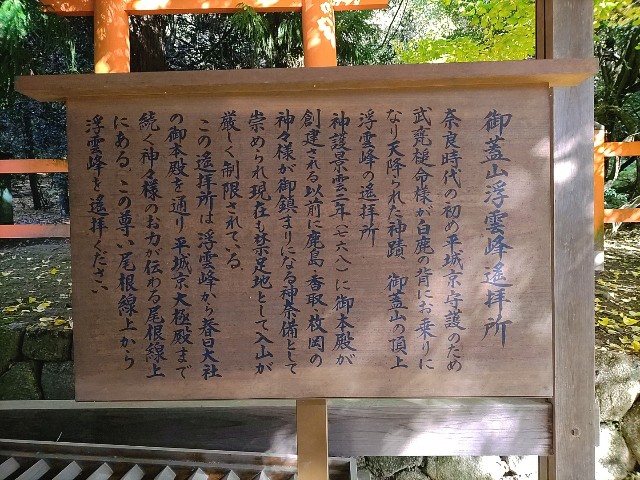 御蓋山浮雲峰遙拝所
奈良時代の初め平城京守護のため
武甕槌命様が白鹿の背にお乗りに
なり天降られた神蹟 御蓋山の頂上
浮雲峰の遥拝所
神護景雲二年（七六八）に御本殿が
創建される以前に鹿島・香取・枚岡の
神々様が御鎮まりになる神奈備として
崇められ現在も禁足地として入山が
厳しく制限されている。
この遥拝所は、浮雲峰から春日大社
の御本殿を通り平城京大極殿まで
続く神々様のお力が伝わる尾根線上
にある。この尊い尾根線上から
浮雲峰を遥拝ください。